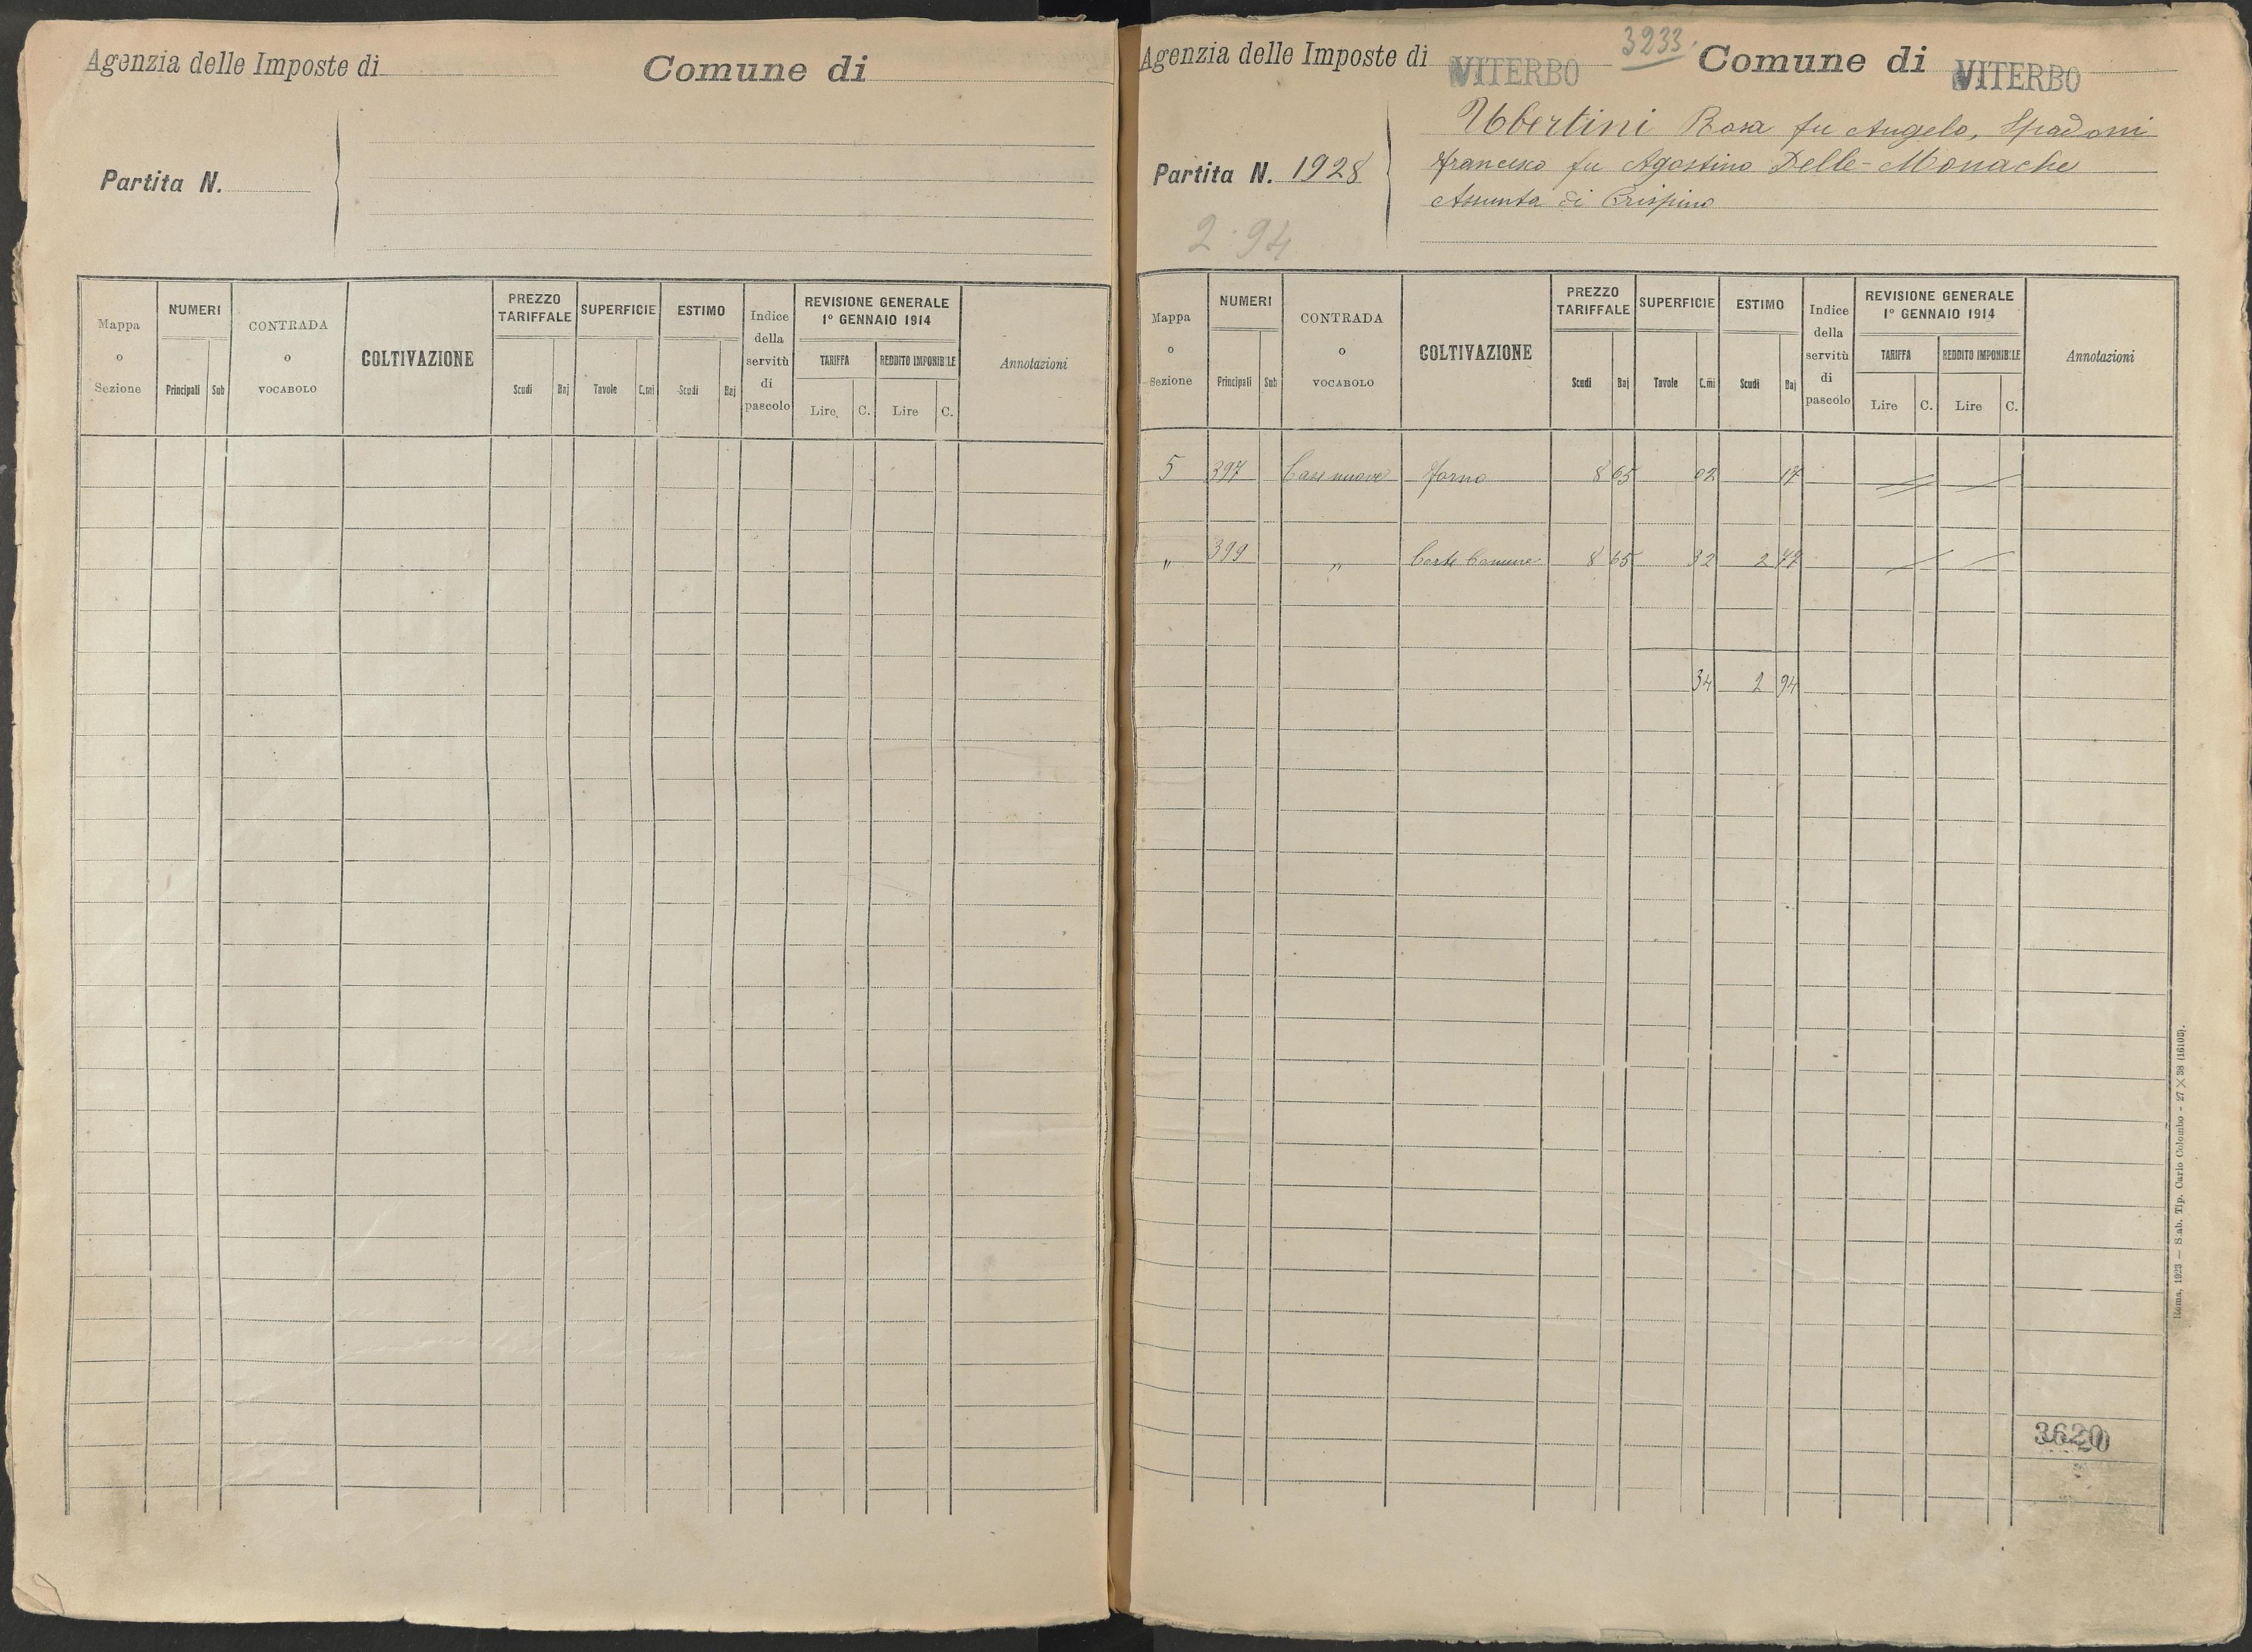 Agenzia delle Imposte di
Comune di
Partita N.
Mappa o Sezione
NUMERI
Principali
Sub
CONTRADA o VOCABOLO
COLTIVAZIONE
PREZZO TARIFFALE
Scudi
Baj
SUPERFICIE
Tavole
C.mi
ESTIMO
Scudi
Baj
Indice della servitù di pascolo
REVISIONE GENERALE
1º GENNAIO 1914
TARIFFA
REDDITO IMPONIBILE
Lire
C.
Lire
C.
Annotazioni
3233.
Agenzia delle Imposte di VITERBO Comune di VITERBO
Ubertini Rosa fu Angelo, Spadoni
Partita N. 1928
Francesco fu Agostino Delle-Monache
Assunta di Crispino
2.94
Mappa o Sezione
NUMERI
Principali
Sub
CONTRADA o VOCABOLO
COLTIVAZIONE
PREZZO TARIFFALE
Scudi
Baj
SUPERFICIE
Tavole
C.mi
ESTIMO
Scudi
Baj
Indice della servitù di pascolo
REVISIONE GENERALE
1º GENNAIO 1914
TARIFFA
REDDITO IMPONIBILE
Lire
C.
Lire
C.
Annotazioni
5 397 Case nuove Forno 8 65 02 17
" 399 " Corte Comune 8 65 32 2 77
34 2 94
3620
Roma, 1923 — Stab. Tip. Carlo Colombo - 27 × 38 (16103).